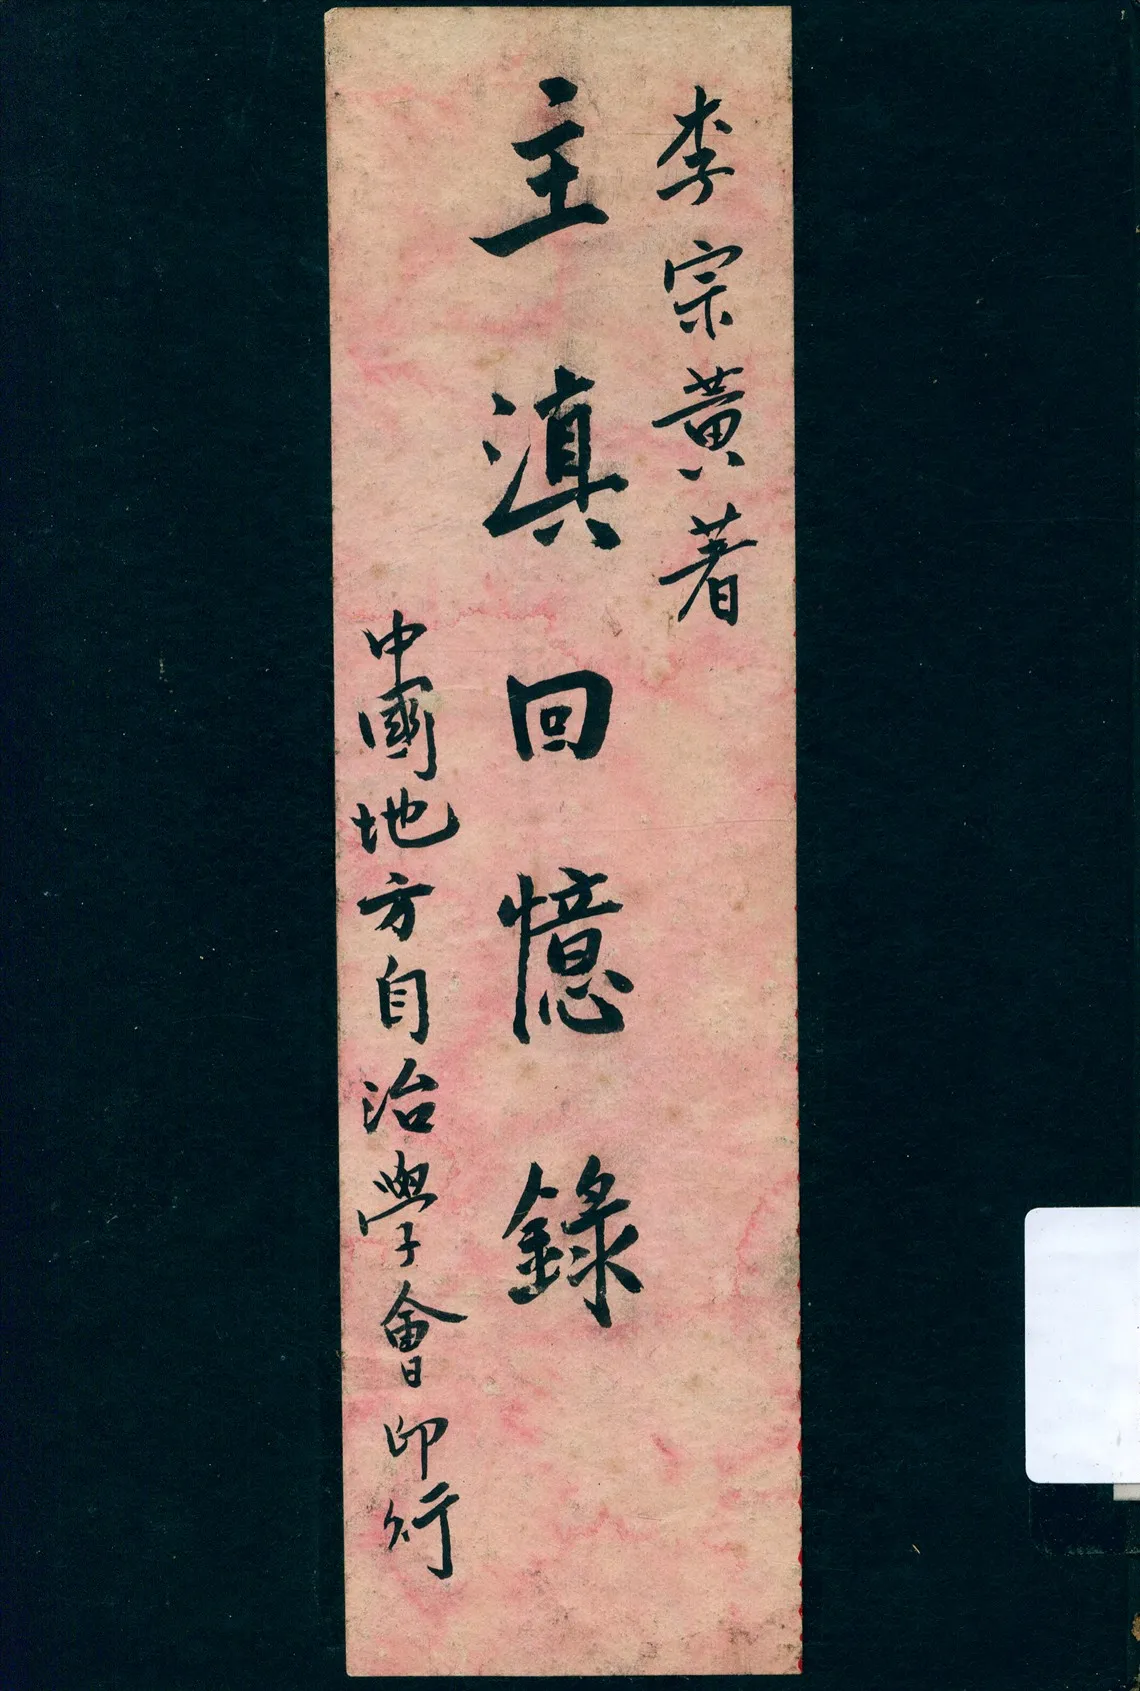 李宗黃著
主滇回憶錄
中國地方自治學會印行